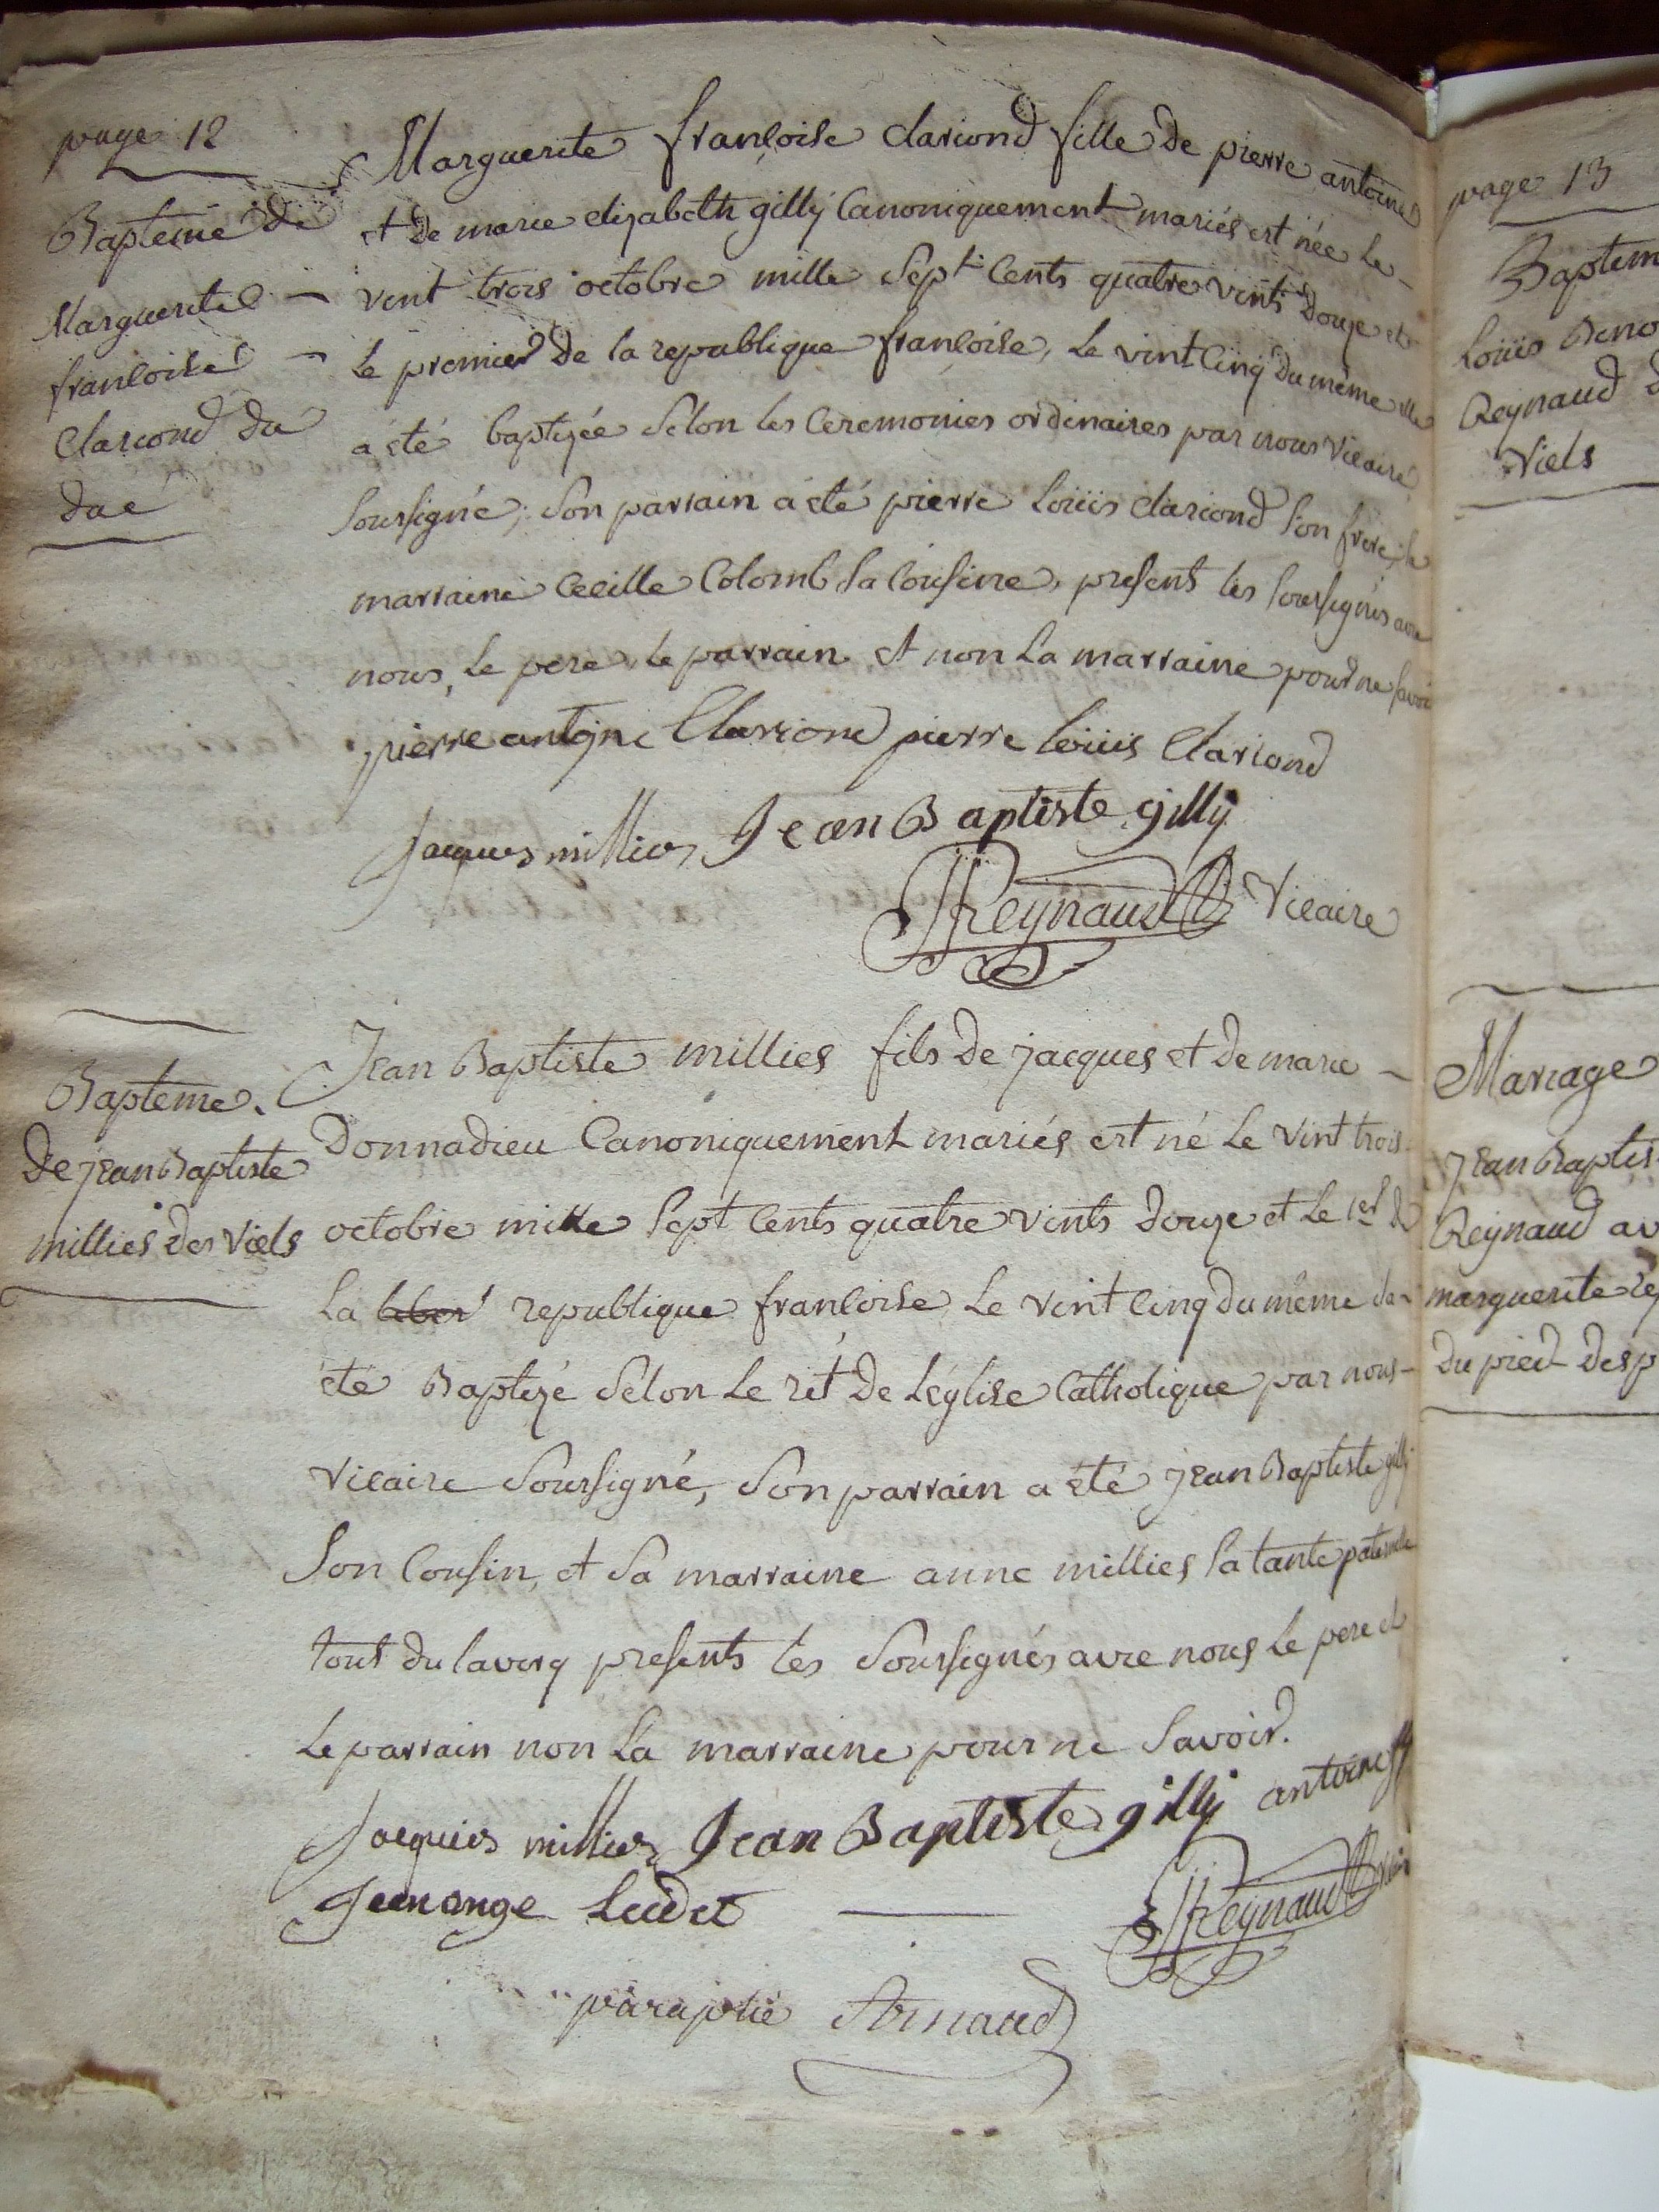 page 12
Bapteme de
Marguerite
francoise
Clariond du
dae
Marguerite françoise clariond fille de pierre antoine
et de marie elizabeth gilly Canoniquement mariés est née le
vint trois octobre mille sept cents quatre vints douze et
le premier de la republique francoise, le vint cinq du même elle
a été baptizée selon les ceremonies ordinaires par nous vicaire
soussigné; son parrain a été pierre loüis clariond son frere, la
marraine cecille Colomb sa cousine, presents les soussignés avec
nous, le pere le parrain et non la marraine pour ne savoir
pierre antojne Clariond pierre loüis Clariond
Jacques millies Jean Baptiste gilly
Reynaud Vicaire
Bapteme
de jean Baptiste
millies des Viels
Jean Baptiste millies fils de jacques et de marie
Donnadieu Canoniquement mariés est né le vint trois
octobre mille sept cents quatre vints douze et le 1er de
la republique francoise le vint cinq du même
été Baptizé selon le rit de leglise Catholique par nous
vicaire soussigné, son parrain a été jean Baptiste gilly
son cousin, et sa marraine anne millies sa tante paternelle
tous du lavercq presents les soussignés avec nous le pere et
le parrain non la marraine pour ne savoir.
Jacques millies Jean Baptiste gilly antoine
Jean ange
Reynaud
paraphé Arnaud
page 13
Baptem
Loüis Beno
Reynaud d
Viels
Mariage
Jean Baptis
Reynaud av
marguerite
du pied desp